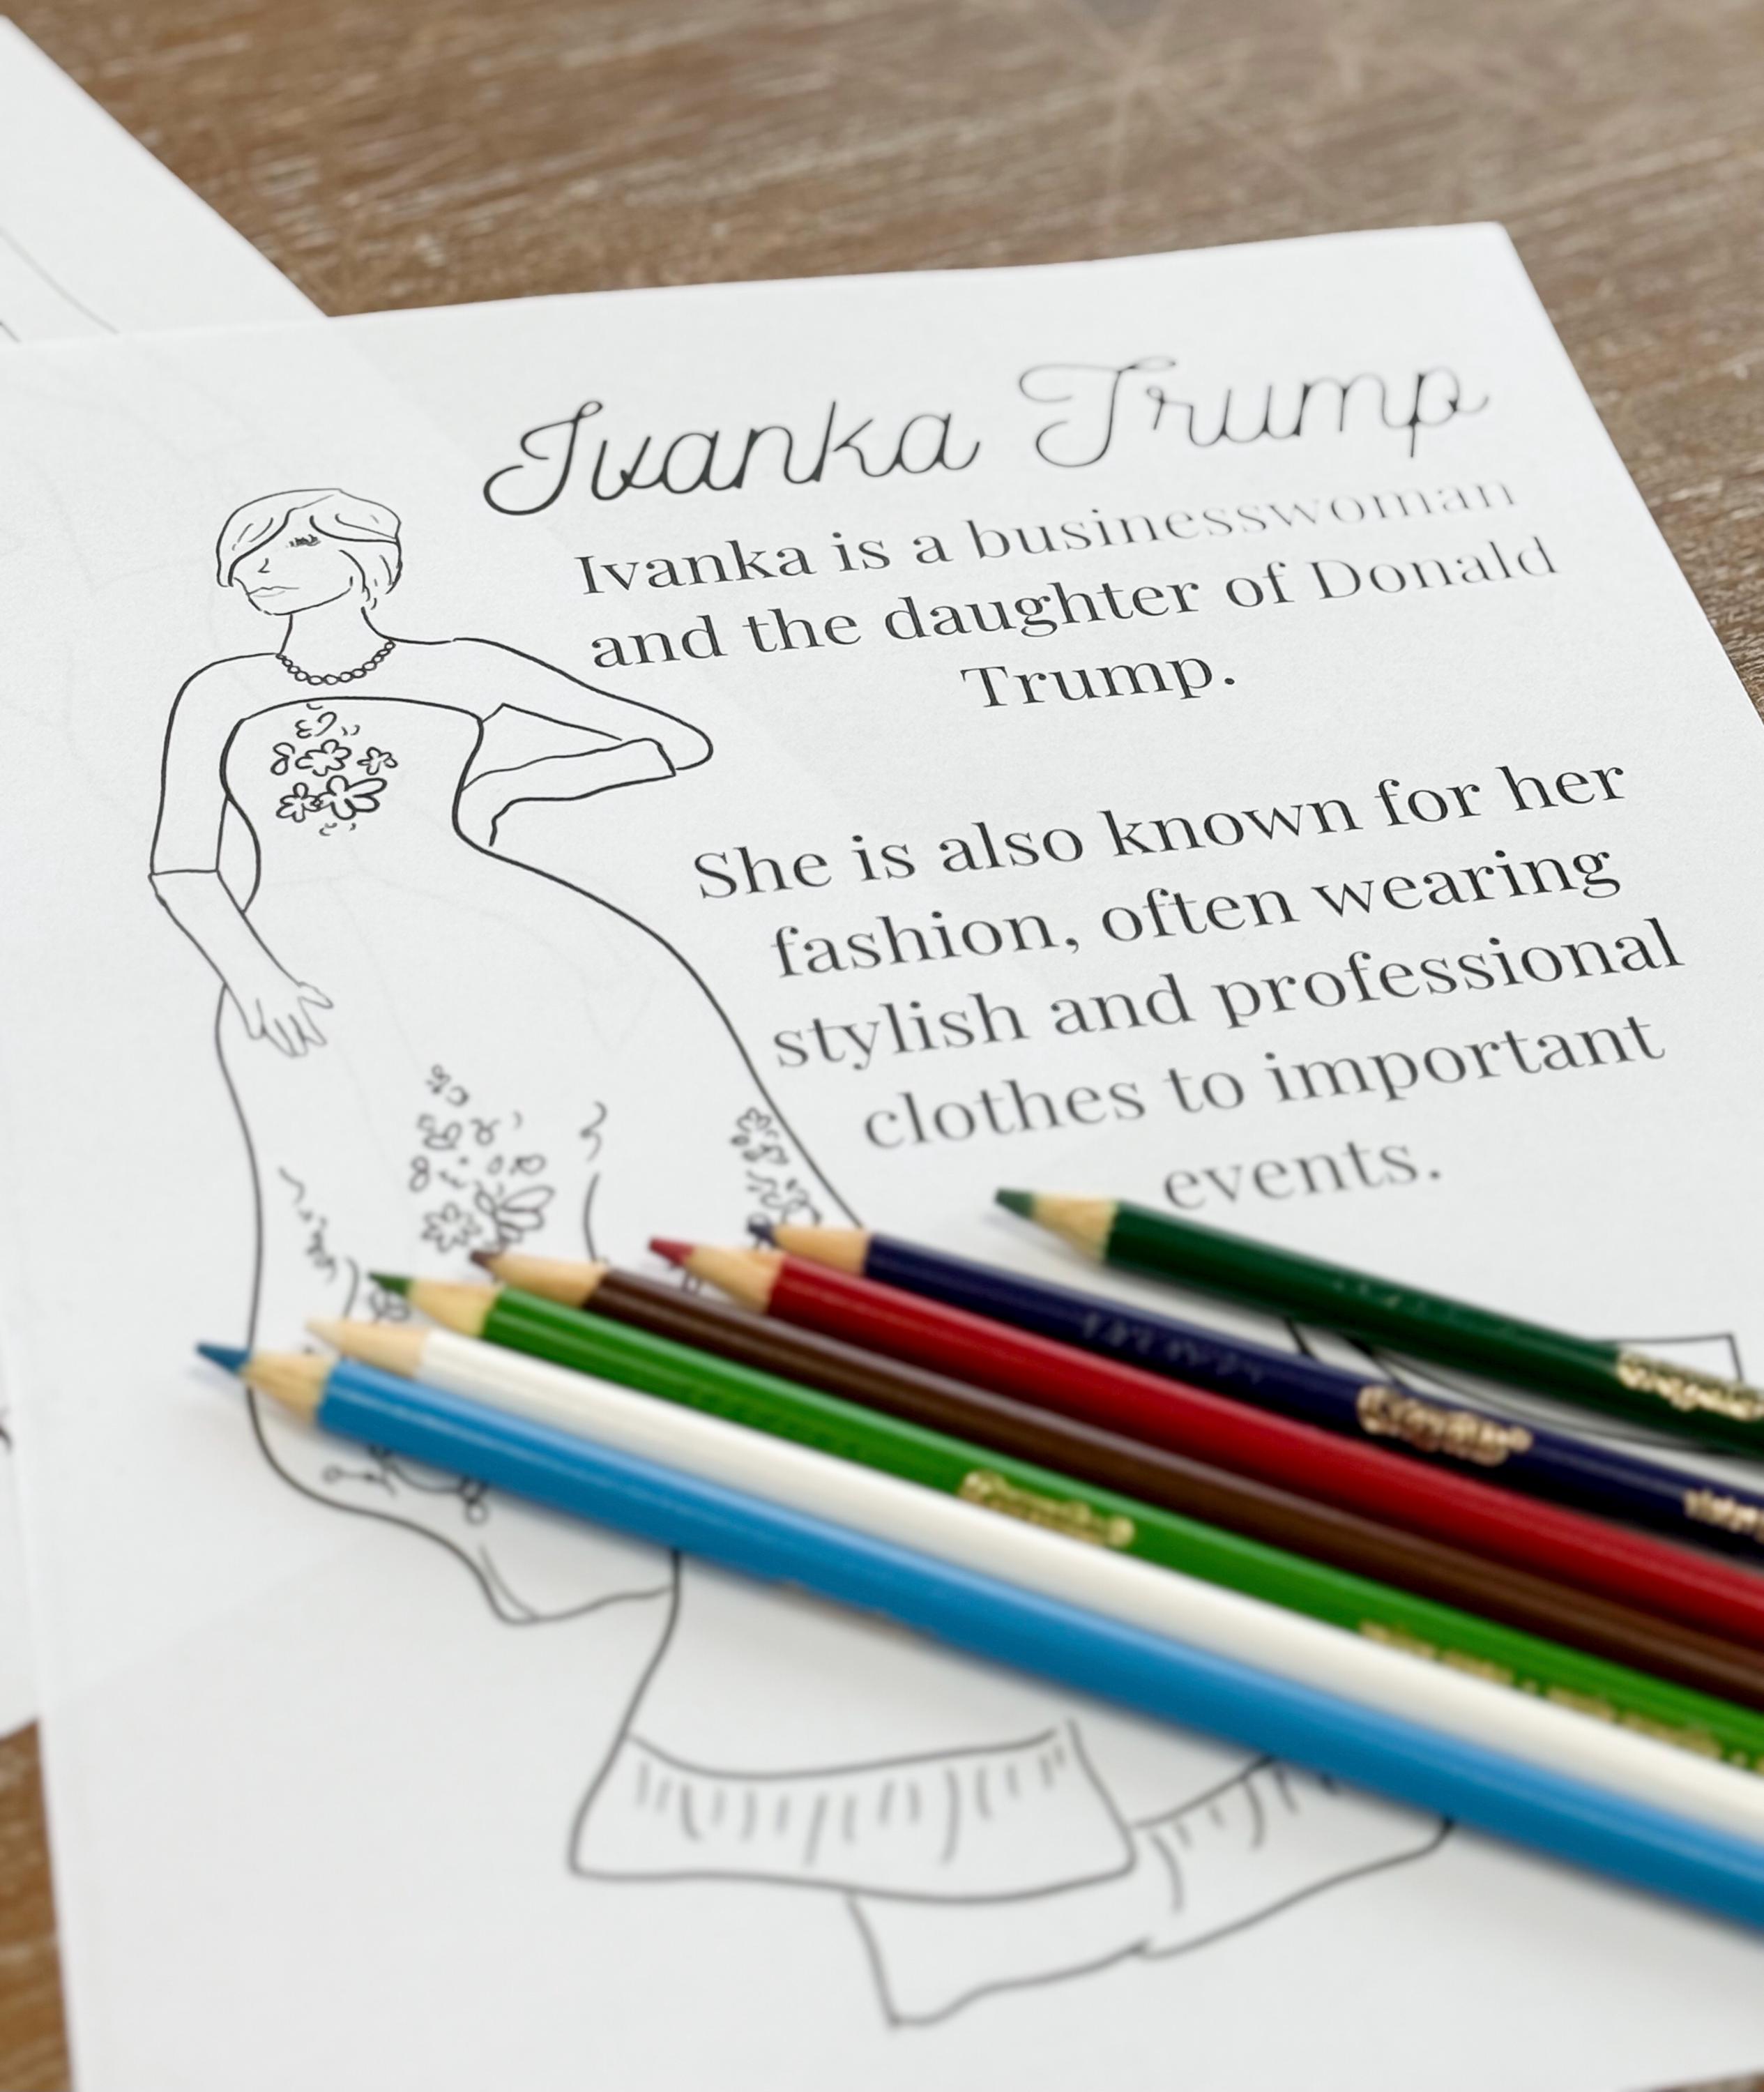 Ivanka Trump
Ivanka is a businesswoman
and the daughter of Donald
Trump.
She is also known for her
fashion, often wearing
stylish and professional
clothes to important
events.